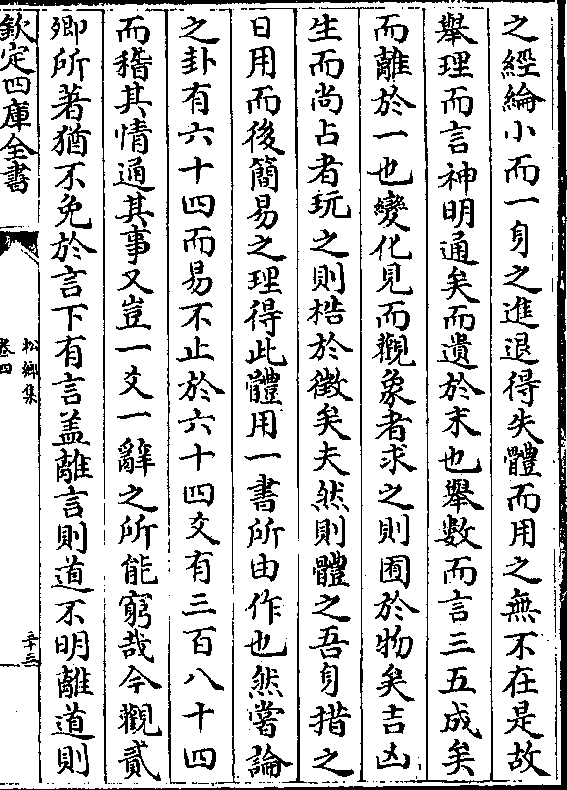 之經綸小而一身之進退得失體而用之無不在是故
舉理而言神明通矣而遺於末也舉數而言三五成矣
而離於一也變化見而觀象者求之則囿於物矣吉凶
生而尚占者玩之則梏於徵矣夫然則體之吾身措之
日用而後簡易之理得此體用一書所由作也然嘗論
之卦有六十四而易不止於六十四爻有三百八十四
而稽其情通其事又豈一爻一辭之所能窮哉今觀貳
卿所著猶不免於言下有言盖離言則道不明離道則
欽定四庫全書
松鄉集
卷四